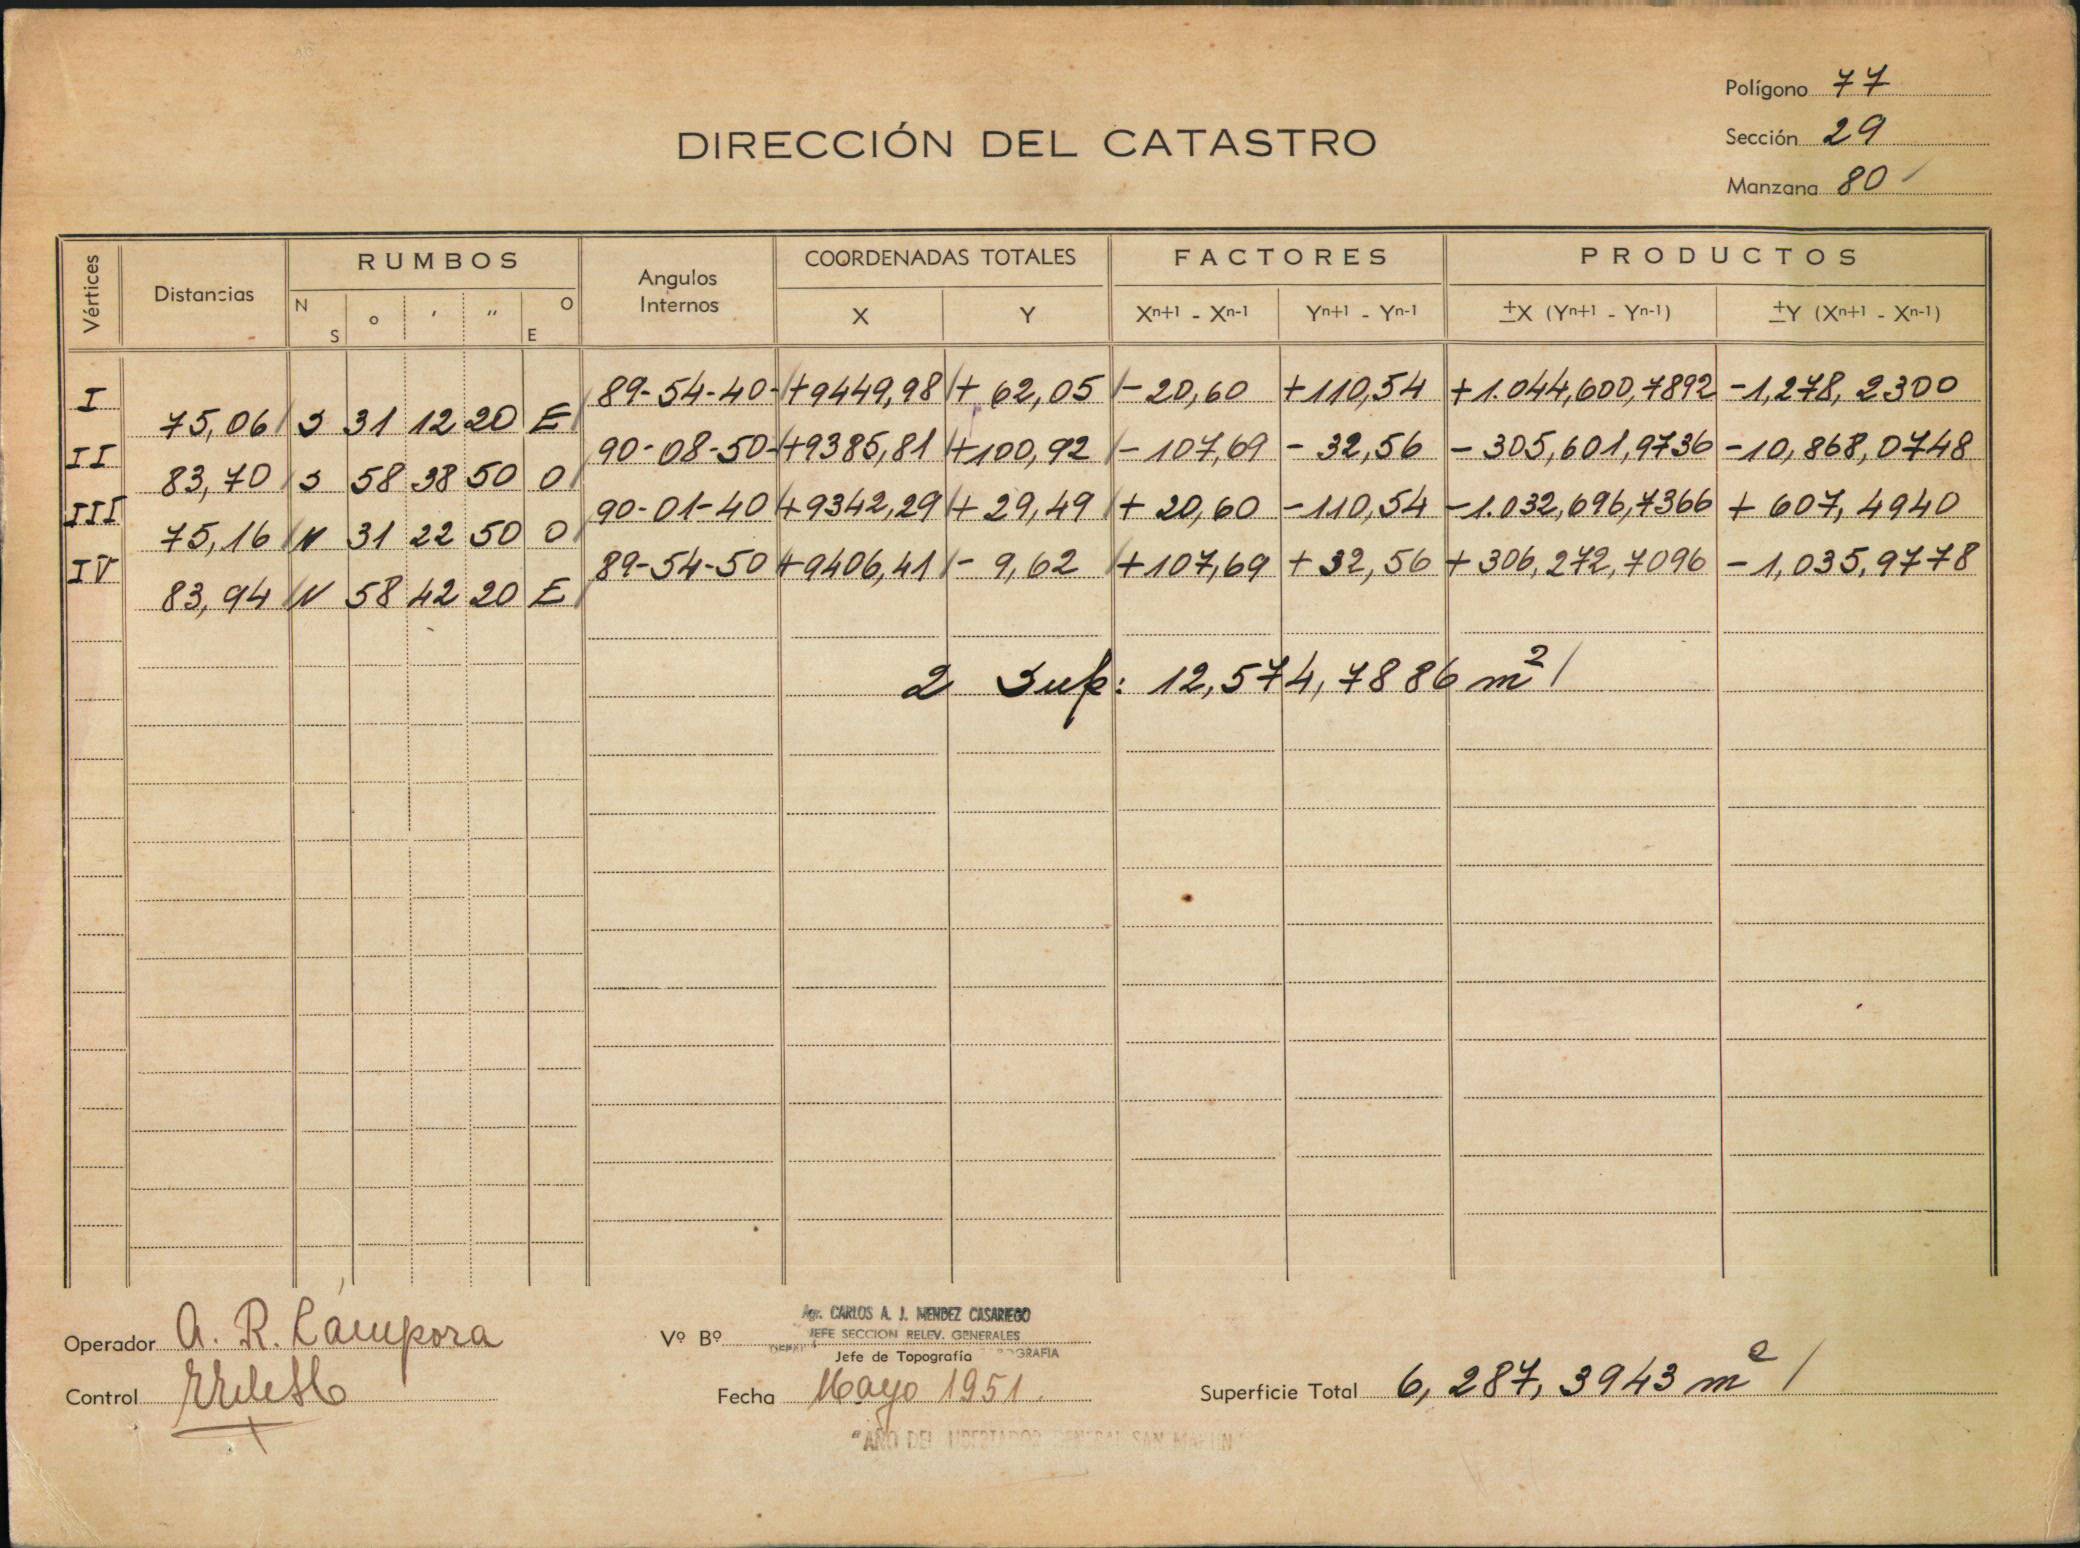 Polígono 77
DIRECCIÓN DEL CATASTRO
Sección 29
Manzana 80
Vértices Distancias RUMBOS Angulos Internos COORDENADAS TOTALES FACTORES PRODUCTOS
N S o ' " O E X Y Xn+1 - Xn-1 Yn+1 - Yn-1 ±X (Yn+1 - Yn-1) ±Y (Xn+1 - Xn-1)
I 89-54-40 +9449,98 + 62,05 - 20,60 +110,54 +1.044,600,7892 -1,278,2300
75,06 S 31 12 20 E
II 90-08-50 +9385,81 +100,92 - 107,69 - 32,56 - 305,601,9736 -10,868,0748
83,70 S 58 38 50 O
III 90-01-40 +9342,29 + 29,49 + 20,60 -110,54 -1.032,696,7366 + 607,4940
75,16 N 31 22 50 O
IV 89-54-50 +9406,41 - 9,62 +107,69 + 32,56 +306,272,7096 - 1,035,9778
83,94 N 58 42 20 E
2 Sup: 12,574,7886 m2
Agr. CARLOS A. J. MENDEZ CASARIEGO
Operador A. R. Cámpora Vº Bº JEFE SECCION RELEV. GENERALES
Jefe de Topografía
Control Fecha Mayo 1951. Superficie Total 6,287,3943 m2
"AÑO DEL LIBERTADOR GENERAL SAN MARTIN"